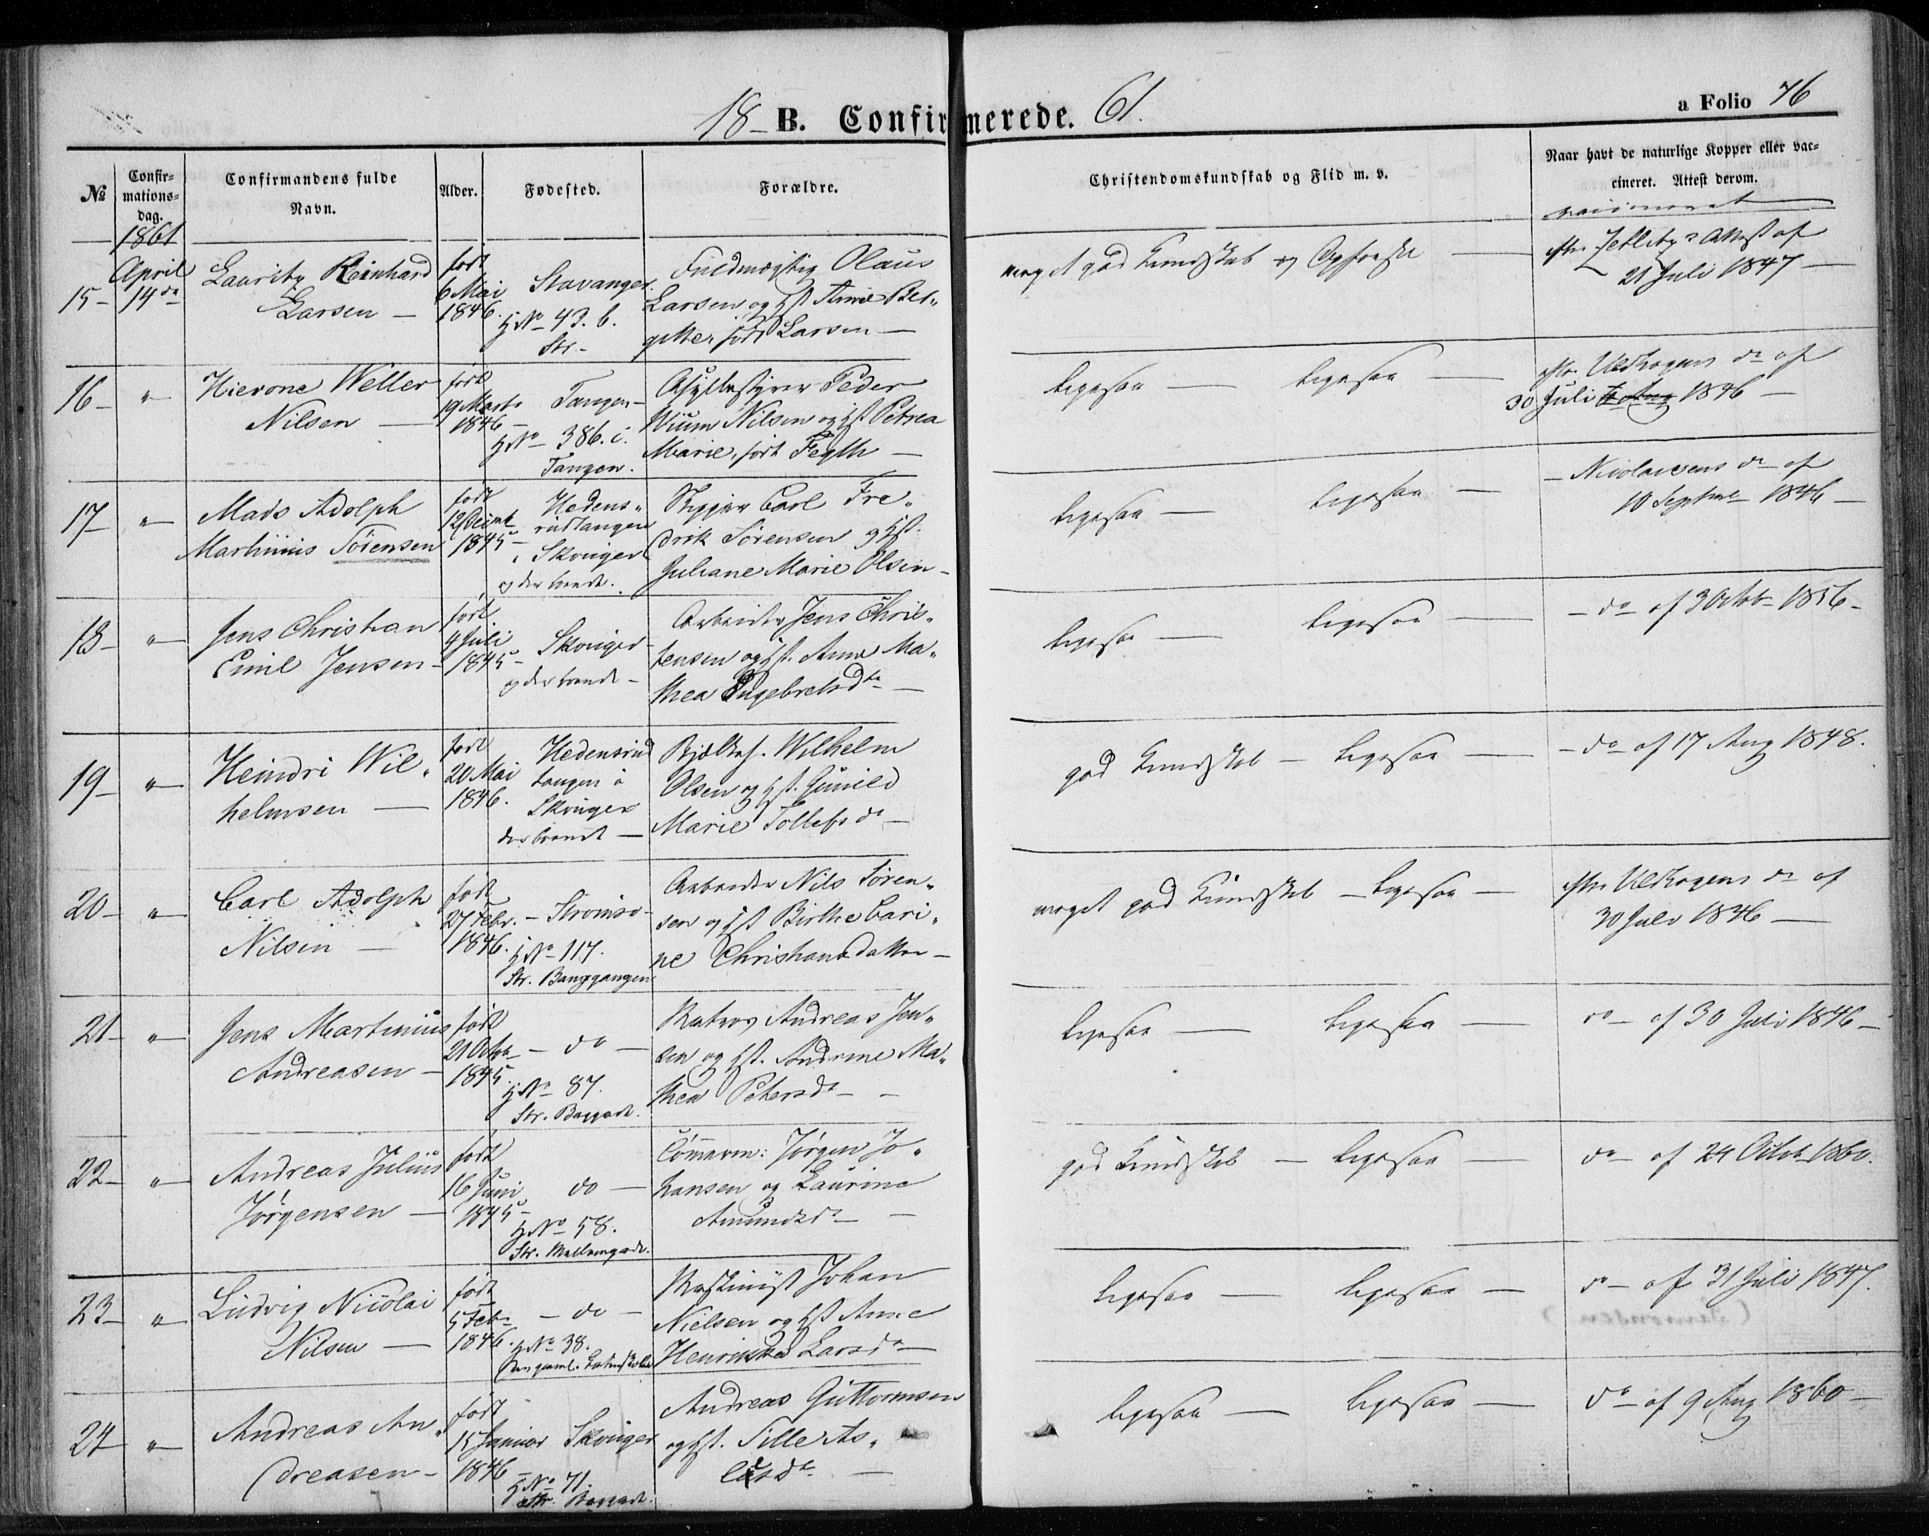 18- B. Confirmerede. 61.
a Folio 76
No
Confirmationsdag.
Confirmandens fulde Navn.
Alder.
Fødested.
Forældre.
Christendomskundskab og Flid m. v.
Naar havt de naturlige Kopper eller vaccineret. Attest derom.
1861
15- April 14de
Lauritz Reinhard
Larsen —
født
6 Mai
1846.
Stavanger.
H No 43. b.
Str-
Olaus
Larsen og Hst Anne Ber„
gitte, født Larsen —
meget god Kundskab og Opførsel —
21 Juli 1847 —
16- "
Weller
Nilsen —
født
19 Marts
1846 —
Tangen-
H No 386. i.
Tangen.
Peder
Wium Nilsen og Hst Petrea
Marie, født Fegth —
ligesaa — ligesaa —
30 Juli 1846 —
17- "
Mads Adolph
Martinius Sørensen
født
1845 -
Hedens„
rudtangen
i Skouger
Carl Fre„
derik Sørensen og Hst.
Juliane Marie Olsen-
ligesaa — ligesaa —
— Nicolaisens do af
10 Septbr 1846 —
18- "
Jens Christian
Emil Jensen -
født
4 Juli
1845 -
Skouger
Arbeider Jens Chris„
tensen og Hst. Anne Ma„
thea Engebretsdtr —
ligesaa — ligesaa —
- do af 3 Octobr
19- "
Heindri Wil„
helmsen —
født
20 Mai
1846.
Hedensrud
tangen i
Skouger
Wilhelm
Olsen og Hst. Gunild
Marie Tollefsdr —
god Kundskab — ligesaa —
- do af 17 Aug 1848.
20- "
Carl Adolph
Nilsen —
født
27 Febr.
1846.
- Strømsø -
H No 117.
Str.
Arbeider Nils Søren„
sen og Hst Birthe Cari„
ne Christiansdatter —
meget god Kundskab — ligesaa —
30 Juli 1846 —
21- "
Jens Martinius
Andreasen —
født
21 Octbr
1845.
- do —
H No 87.
Str. Baggade.
Matros Andreas Jen„
sen og Hst. Andrine Ma„
thea Petersdr —
ligesaa — ligesaa —
do - af 30 Juli 1846 —
22- "
Andreas Julius
Jørgensen —
født
16 Juni
1845 -
do —
H No 58.
Str. Mellemgade.
Tømmerm: Jørgen Jo„
hansen og Laurine
Amundsdr —
god Kundskab — ligesaa —
do - af 24 Octob 1860.
23- "
Ludvig Nicolai
Nilsen —
født
5 Febr
1846.
- do —
H No 38.
Johan
Nielsen og Hst Anne
Larsdr —
ligesaa — ligesaa —
do - af 31 Juli 1847.
24- "
Andreas An„
dreasen -
født
15 Januar
1846 -
Skouger
H No 71.
Str. Baggade.
Andreas Guttormsen
og Hst.
ligesaa — ligesaa —
do - af 9 Aug 1860 —